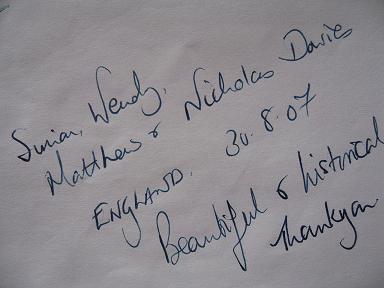 Simon, Wendy,
Matthew & Nicholas Davies
ENGLAND. 30.8.07
Beautiful & historical
Thankyou